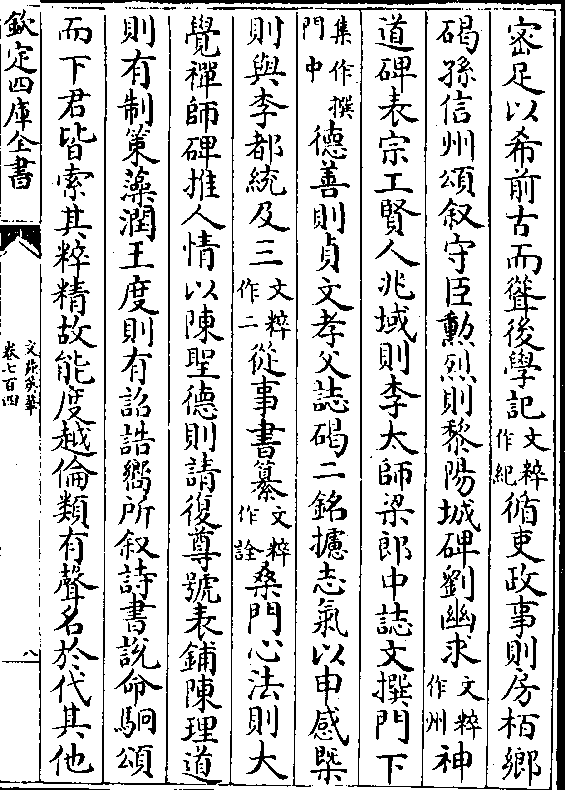 密足以希前古而聳後學記文粹作紀循吏政事則房栢鄉
碣孫信州頌叙守臣勲烈則黎陽城碑劉幽求文粹作州神
道碑表宗工賢人兆域則李太師梁郎中誌文撰門下
集作撰門中德善則貞文孝父誌碣二銘攄志氣以申感槩
則與李都統及三文粹作二從事書纂文粹作詮桑門心法則大
覺禪師碑推人情以陳聖德則請復尊號表鋪陳理道
則有制策藻潤王度則有詔誥嚮所叙詩書說命駉頌
而下君皆索其粹精故能度越倫類有聲名於代其他
欽定四庫全書
文苑英華
卷七百四
八